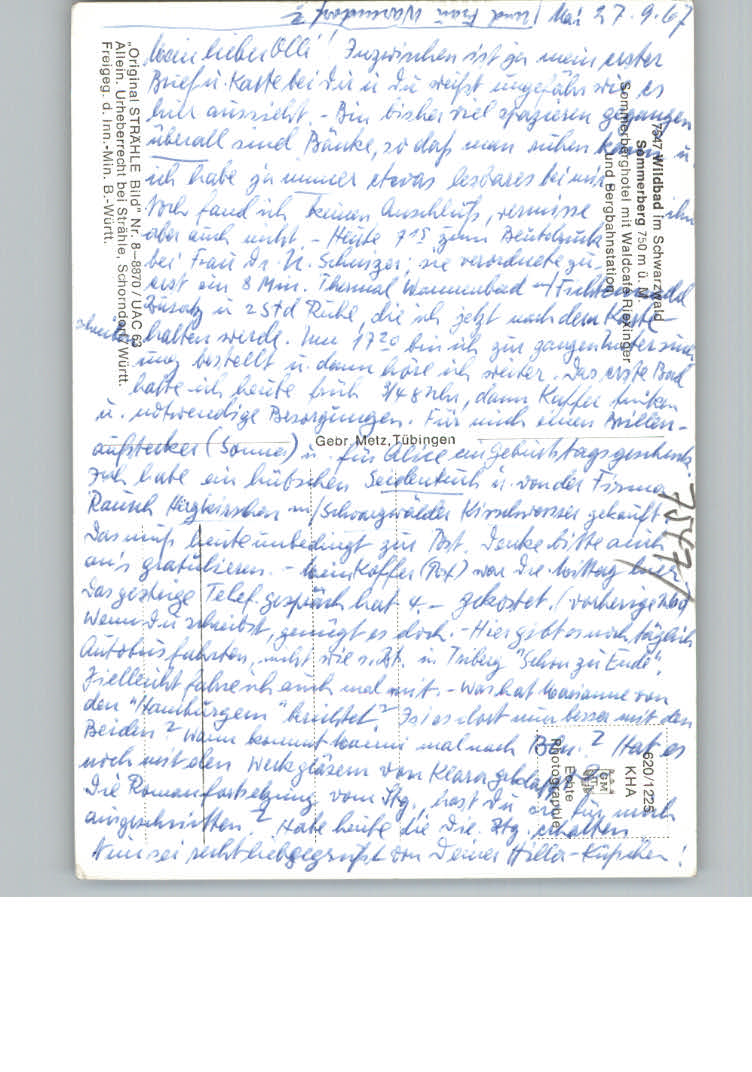 Mai 27.9.67
Mein lieber Olli! Inzwischen ist ja mein erster
Brief u. Karte bei Dir u. Du weißt ungefähr wie es
hier aussieht. - Bin bisher viel spazieren gegangen
überall sind Bänke, so daß man ruhen kann u.
ich habe ja immer etwas lesbares bei mir
Noch fand ich keinen Anschluß, vermisse ihn
aber auch nicht. - Heute 7 15 zum
bei Frau Dr. ; sie verordnete zu-
erst ein 8 Min. Thermal Wannenbad m/
Zusatz u. 2 Std Ruhe, die ich jetzt nach dem Karte
schreiben halten werde. Um 17 20 bin ich zur
bestellt u. dann höre ich weiter. Das erste Bad
hatte ich heute früh 3/4 8 Uhr, dann Kaffee trinken
u. notwendige Besorgungen. Für mich einen Brillen-
aufstecker (Sonne) u. für Alice ein Geburtstagsgeschenk.
Ich habe ein hübsches Seidentuch u. von der Firma
Rausch m/Schwarzwälder Kirschwasser gekauft
Das muß heute unbedingt zur Post. Denke bitte auch
an's gratulieren. - Mein Koffer war Die. Mittag hier.
Das gestrige Telef. gespräch hat 4.- gekostet.
Wenn Du schreibst, genügt es doch. - Hier gibt es noch täglich
Autobusfahrten, nicht wie s. Zt. in Triberg "Schon zu Ende".
Vielleicht fahre ich auch mal mit. - Was hat Marianne von
den "Hamburgern" berichtet? Ist es dort nun besser mit den
Beiden? Wann kommt mal nach ? Hat es
noch mit den Weckgläsern von Klara geklappt?
Die Romanfortsetzung vom Stg. hast Du sie für mich
ausgeschnitten? Habe heute die Die. Ztg. erhalten
Nun sei recht lieb gegrüßt von Deiner
7547 Wildbad im Schwarzwald
Sommerberg 750 m ü. M.
Sommerberghotel mit Waldcafé Riexinger
und Bergbahnstation
„Original STRÄHLE Bild" Nr. 8–8870 / UAC 63
Allein. Urheberrecht bei Strähle, Schorndorf/Württ.
Freigeg. d. Inn.-Min. B.-Württ.
Gebr. Metz, Tübingen
7547/
620/1225
KHA
Echte
Photographie